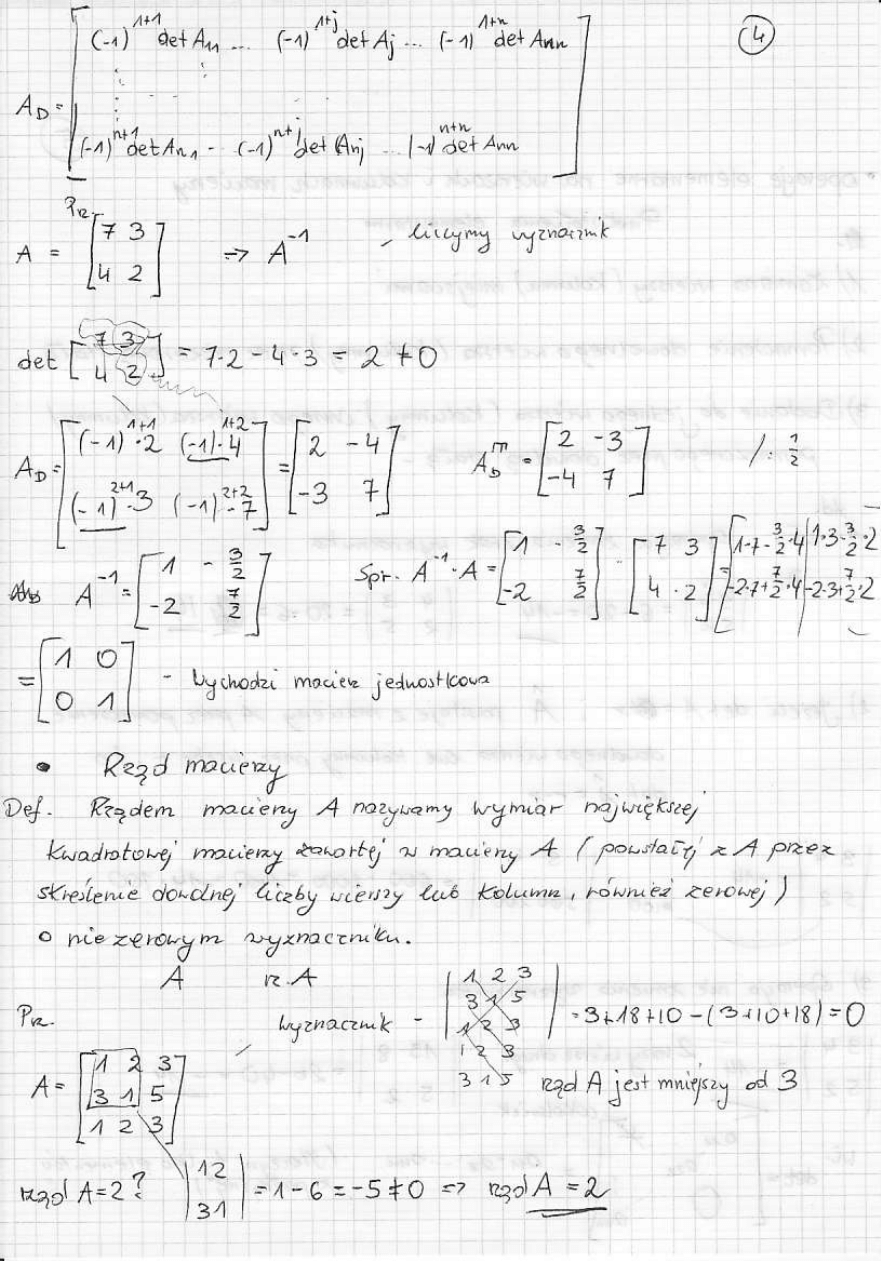 (4)
A_D = [ (-1)^{1+1} det A_{11} ... (-1)^{1+j} det A_j ... (-1)^{1+n} det A_{nn}
(-1)^{n+1} det A_{n1} - (-1)^{n+j} det (A_{nj} ... (-1)^{n+n} det A_{nn} ]
Prz.
A = [ 7 3 ; 4 2 ] => A^{-1} , liczymy wyznacznik
det [ 7 3 ; 4 2 ] = 7·2 - 4·3 = 2 ≠ 0
A_D = [ (-1)^{1+1}·2 (-1)^{1+2}·4 ; (-1)^{2+1}·3 (-1)^{2+2}·7 ] = [ 2 -4 ; -3 7 ] A_D^T = [ 2 -3 ; -4 7 ] /· 1/2
A^{-1} = [ 1 -3/2 ; -2 7/2 ] Spr. A^{-1}·A = [ 1 -3/2 ; -2 7/2 ] · [ 7 3 ; 4 · 2 ] = [ 1·7-3/2·4 | 1·3-3/2·2 ; -2·7+7/2·4 | -2·3+7/2·2 ]
= [ 1 0 ; 0 1 ] - Wychodzi macierz jednostkowa
• Rząd macierzy
Def. Rzędem macierzy A nazywamy wymiar największej
kwadratowej macierzy zawartej w macierzy A (powstałej z A przez
skreślenie dowolnej liczby wierszy lub kolumn, również zerowej)
o niezerowym wyznaczniku.
A rz. A
Prz. wyznacznik - | 1 2 3 ; 3 1 5 ; 1 2 3 | = 3+18+10-(3+10+18)=0
1 2 3
3 1 5 rząd A jest mniejszy od 3
A = [ 1 2 3 ; 3 1 5 ; 1 2 3 ]
rząd A=2? | 1 2 ; 3 1 | = 1-6 = -5 ≠ 0 => rząd A = 2